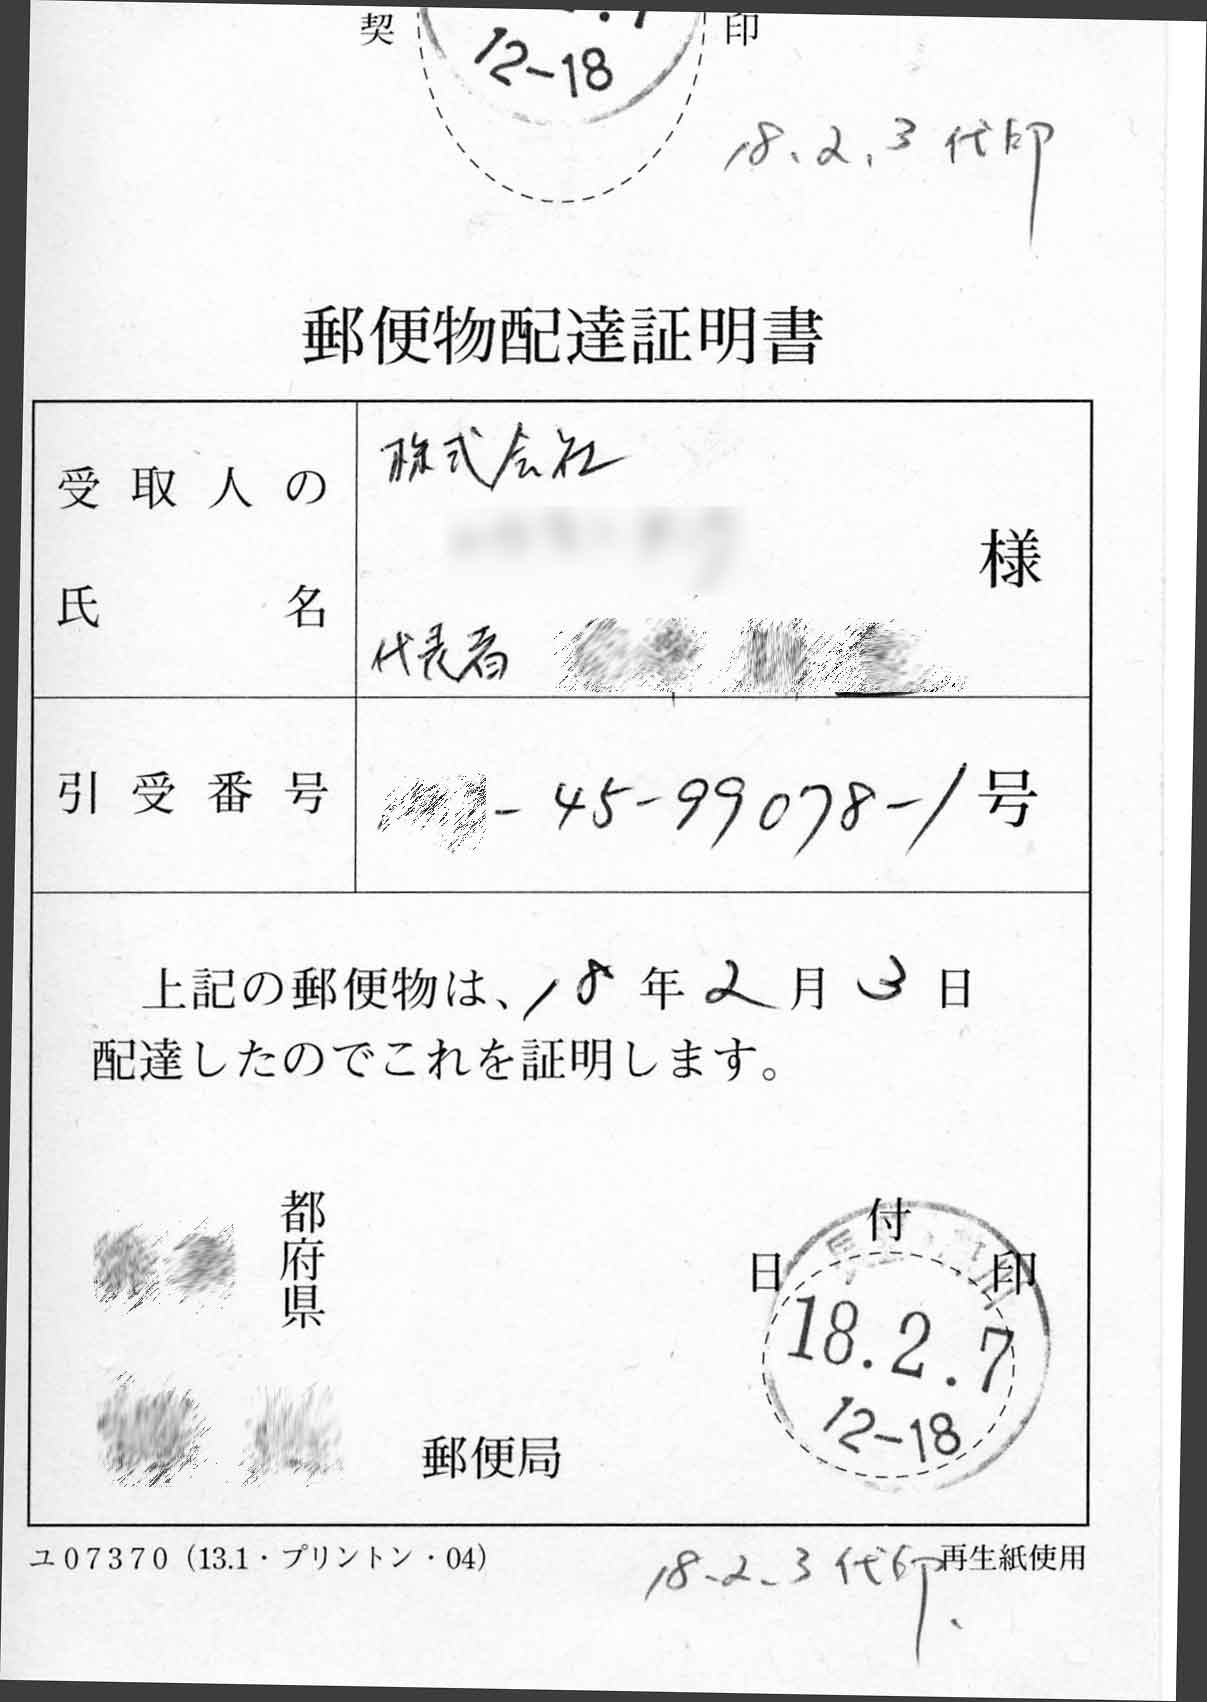 契 印
12-18
18.2.3代印
郵便物配達証明書
受取人の
氏名
株式会社
様
代表者
引受番号
-45-99078-1号
上記の郵便物は、18年2月3日
配達したのでこれを証明します。
都府県
郵便局
日付印
18.2.7
12-18
ユ07370(13.1・プリントン・04)
再生紙使用
18.2.3代印